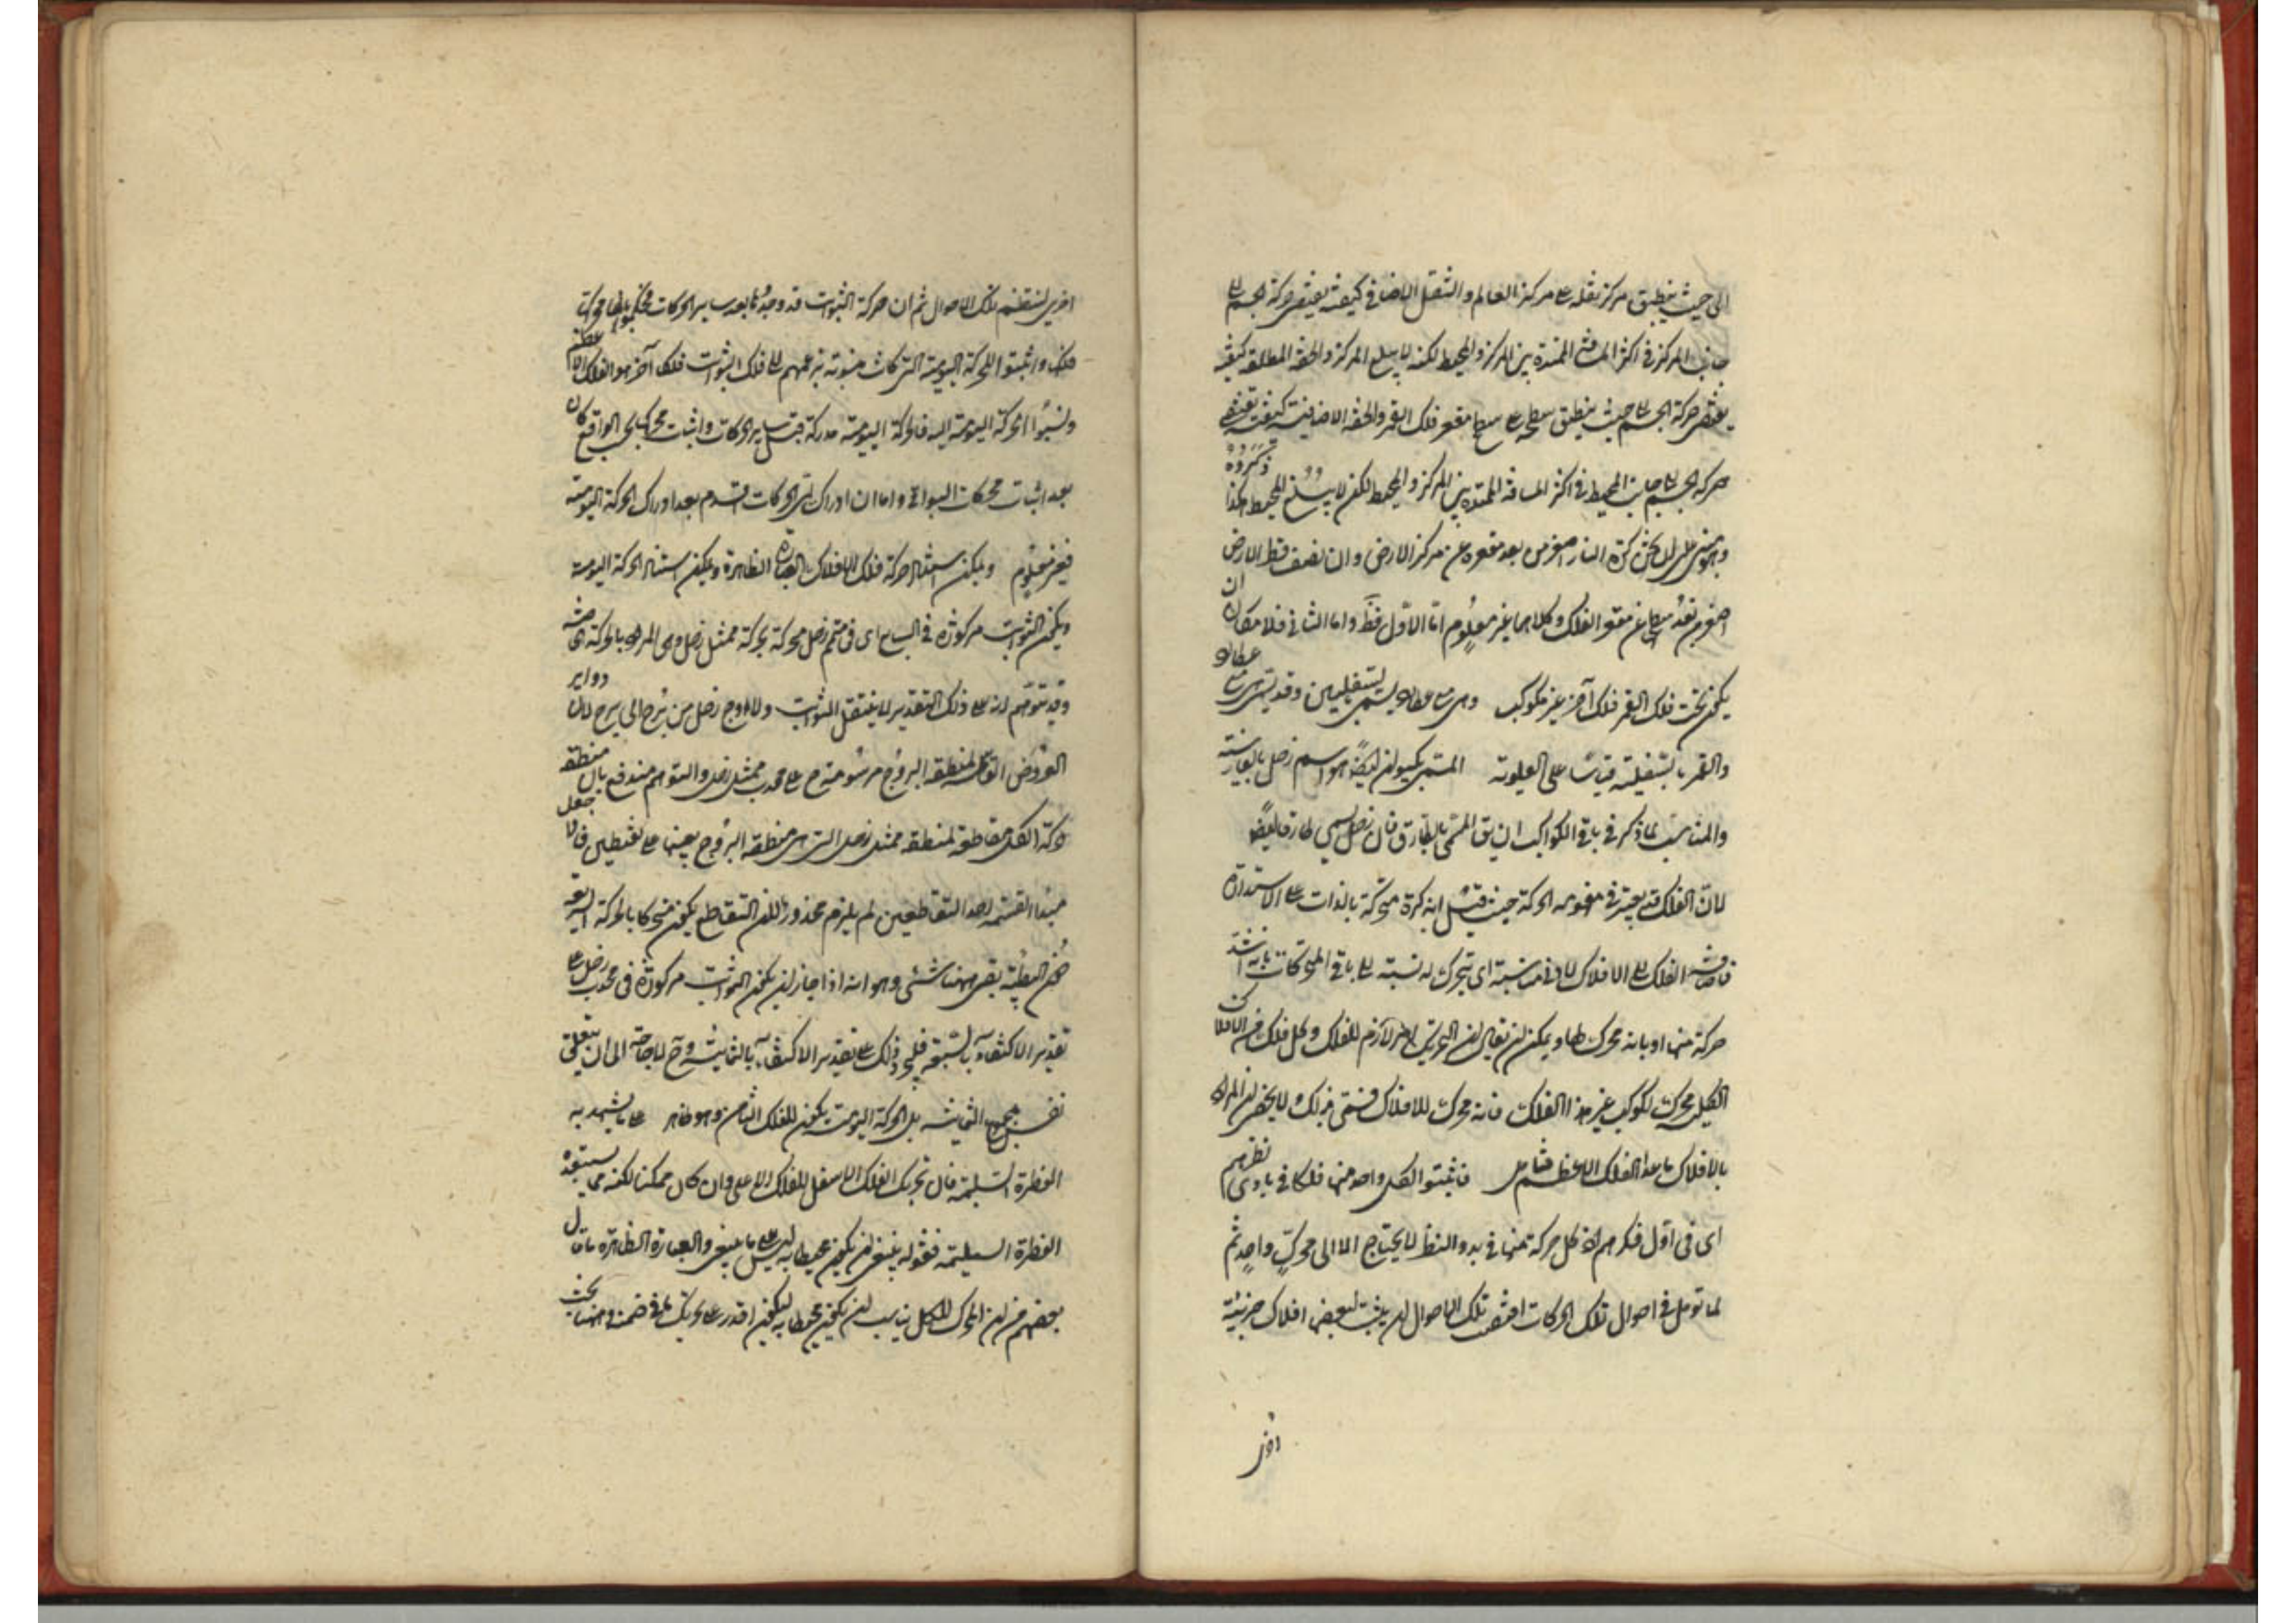 الى حيث ينطبق مركز ثقله على مركز العالم والثقل الاضافى كيفية يقتضى حركة الجسم الى
جانب المركز فى اكثر المسافة الممتدة بين المركز والمحيط لكنه لا يبلغ المركز والخفة المطلقة كيفية
يقتضى حركة الجسم الى حيث ينطبق سطحه على سطح مقعر فلك القمر والخفة الاضافية كيفية تقتضى
حركة الجسم الى جانب المحيط فى اكثر المسافة الممتدة بين المركز والمحيط لكن لا يبلغ المحيط هكذا ذكروه
وهو مبنى على ان كرة النار اصغر من بعد مقعره عن مركز الارض وان نصف قطر الارض
اصغر من بعد عن مقعر الفلك وكلاهما غير معلوم اما الاول فظ واما الثانى فلامكان ان
يكون تحت فلك القمر فلك آخر غير مكوكب وهى مع عطارد يسمى بسفليين وقد يسمى مع عطارد
والقمر بالسفلية قياسا على العلوية المسمى بكيوان ايضا هو اسم زحل بالفارسية
والمناسب لما ذكر فى باقى الكواكب ان يق المسمى بالطارق فان زحل يسمى طارقا ايضا
لان الفلك قد يعتبر فى مفهومه الحركة حيث قيل انه كرة متحركة بالذات على الاستدارة
الفلك الى الافلاك لادنى مناسبة اى تتحرك له نسبة الى باقى المتحركات بانه اشد
حركة منها او بانه محرك لها ويمكن ان يقال ان التحريك لازم للفلك وكل فلك من الافلاك
الكلى محرك لكوكب غير هذا الفلك فانه محرك للافلاك فسمى بذلك لا يخفى ان المراد
بالافلاك ما عدا الفلك الاعظم فتامل فاثبتوا لكل واحد منها فلكا فى بادى نظرهم
اى فى اول فكرهم اذ كل حركة منها فى بدو النظر لا يحتاج الا الى محرك واحد ثم
لما تومل فى اصول تلك الحركات اقتضت تلك الاصول ان يثبت لبعض افلاك جزئية
اخرى
اخرى لتنتظم تلك الاصول ثم ان حركة الثوابت قد وجدوها بعد ساير الحركات
فلك واثبتوا للحركة اليومية التى كانت منسوبة بزعمهم الى فلك الثوابت فلكا آخر هو الفلك الاعظم
ونسبوا الحركة اليومية اليه فالحركة اليومية مدركة قبل ساير الحركات واثبات محركها بحسب الواقع كان
بعد اثبات محركات البواقى واما ان ادراك اى الحركات اقدم بعد ادراك الحركة اليومية
فغير معلوم ويمكن استناد حركة فلك الافلاك الظاهرة ويمكن استناد الحركة اليومية
ويكون الثوابت مركوزة فى السابع اى فى متمم زحل محركة بحركة ممثل زحل وهى المراد بالحركة
وقد يتوهم انه على ذلك التقدير لا ينتقل الثوابت ولا اوج زحل من برج الى برج لان دواير
العروض لمنطقة البروج مرسومة على محدب ممثل زحل والتوهم مندفع بان منطقة
حركة الكل مقاطعة لمنطقة ممثل زحل التى هى منطقة البروج بعينها على نقطتين فان جعل
مبدا القسمة احد التقاطعين لم يلزم محذور لان التقاطع يكون متحركا بالحركة السريعة
بقى ههنا شئ وهو انه اذا جاز ان يكون الثوابت مركوزة فى محدب زحل على
تقدير الاكتفاء بالسبعة فليجز ذلك على تقدير الاكتفاء بالثمانية وح لا حاجة الى ان يتعلق
نفس بمجموع الثمانية بل الحركة اليومية يكون للفلك الثامن وهو ظاهر على ما يشهد به
الفطرة السليمة فان تحريك الفلك الاسفل للفلك الاعلى وان كان ممكنا لكنه مما يستبعده
الفطرة السليمة فقوله ينبغى ان يكون محيطا به ليس على ما ينبغى والعبارة الظاهرة ما قال
بعضهم من ان المحرك للكل يناسب ان يكون محيطا به ليكون اقدر على تحريك ما فى ضمنه وههنا بحث